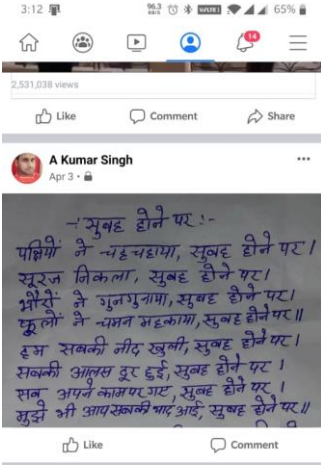 3:12
96.3 KB/S
VoLTE 1
65%
14
2,531,038 views
Like Comment Share
A Kumar Singh
Apr 3 •
-: सुबह होने पर :-
पक्षियों ने चहचहाया, सुबह होने पर।
सूरज निकला, सुबह होने पर।
भौंरों ने गुनगुनाया, सुबह होने पर।
फूलों ने चमन महकाया, सुबह होने पर॥
हम सबकी नींद खुली, सुबह होने पर।
सबकी आलस दूर हुई, सुबह होने पर।
सब अपने काम पर गए, सुबह होने पर।
मुझे भी आप सबकी याद आई, सुबह होने पर॥
Like Comment